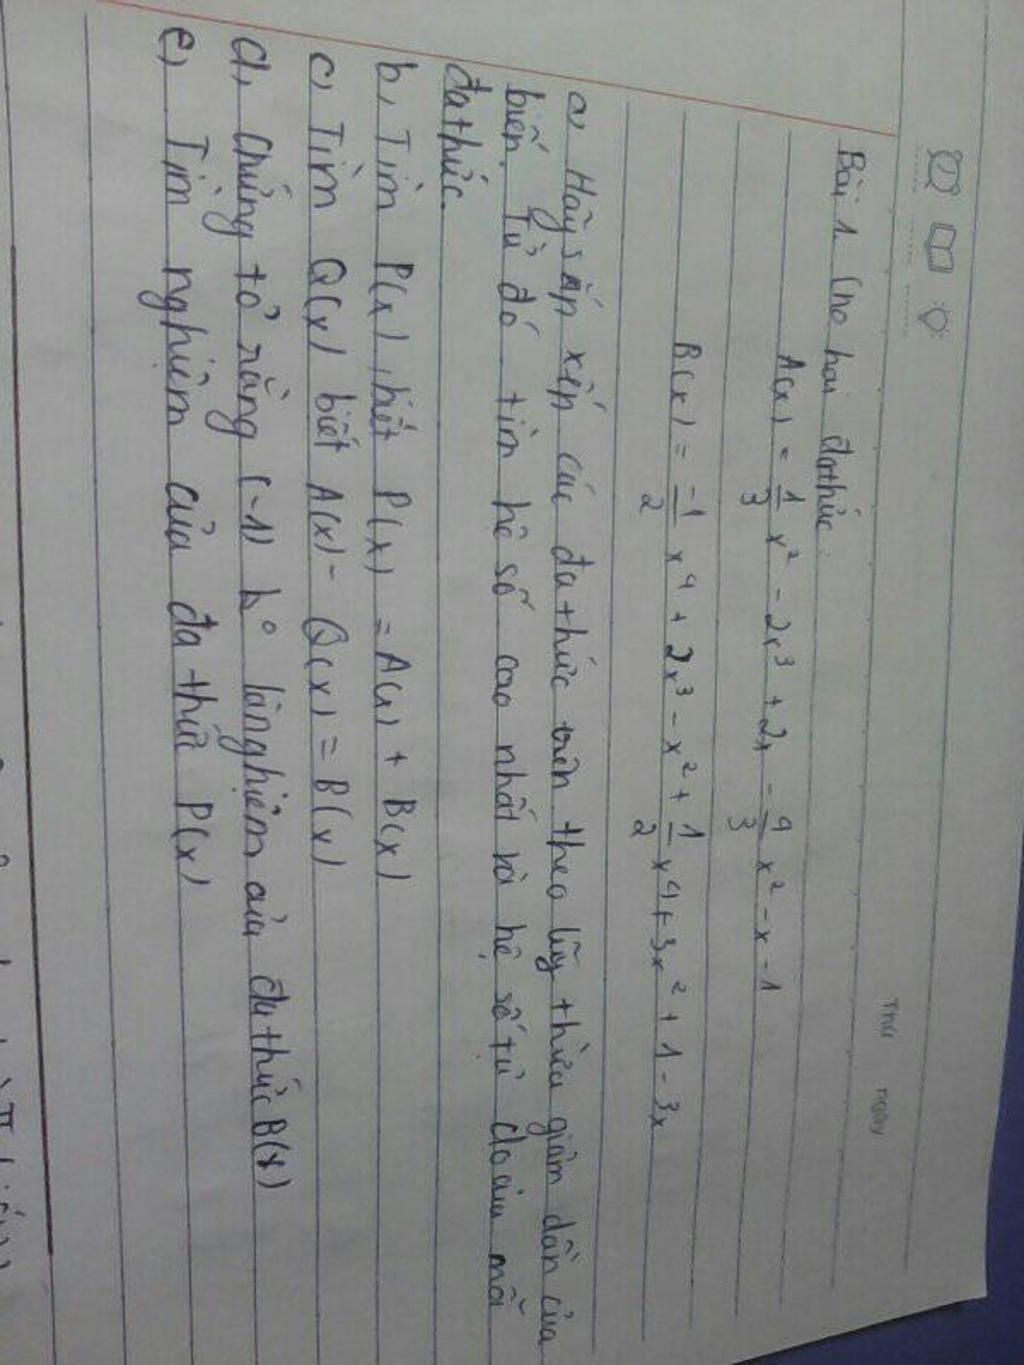 Thứ ngày
Bài 1. Cho hai đathức:
A(x) = 1/3 x² - 2x³ + 2x - 4/3 x² - x - 1
B(x) = -1/2 x⁴ + 2x³ - x² + 1/2 x⁴ + 3x² + 1 - 3x
a, Hãy sắp xếp các đa thức trên theo lũy thừa giảm dần của
biến, từ đó tìm hệ số cao nhất và hệ số tự do của mỗi
đa thức.
b, Tìm P(x), biết P(x) = A(x) + B(x)
c, Tìm Q(x) biết A(x) - Q(x) = B(x)
d, Chứng tỏ rằng (-1) ko là nghiệm của đa thức B(x)
e, Tìm nghiệm của đa thức P(x)